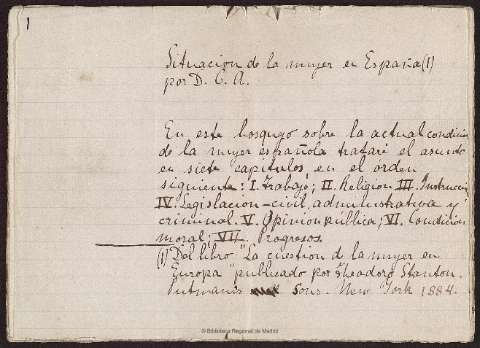 1
Situacion de la mujer en España (1)
por D. C. A.
En este bosquejo sobre la actual condicion
de la mujer española trataré el asunto
en siete capítulos en el orden
siguiente: I. Trabajo; II. Religion III. Instrucción
IV. Legislacion-civil, administrativa y
criminal. V. Opinion pública; VI. Condicion
moral; VII. Progresos.
(1) Del libro "La cuestion de la mujer en
Europa" publicado por Theodoro Stanton.
Putmanis Sons. New York 1884.
© Biblioteca Regional de Madrid